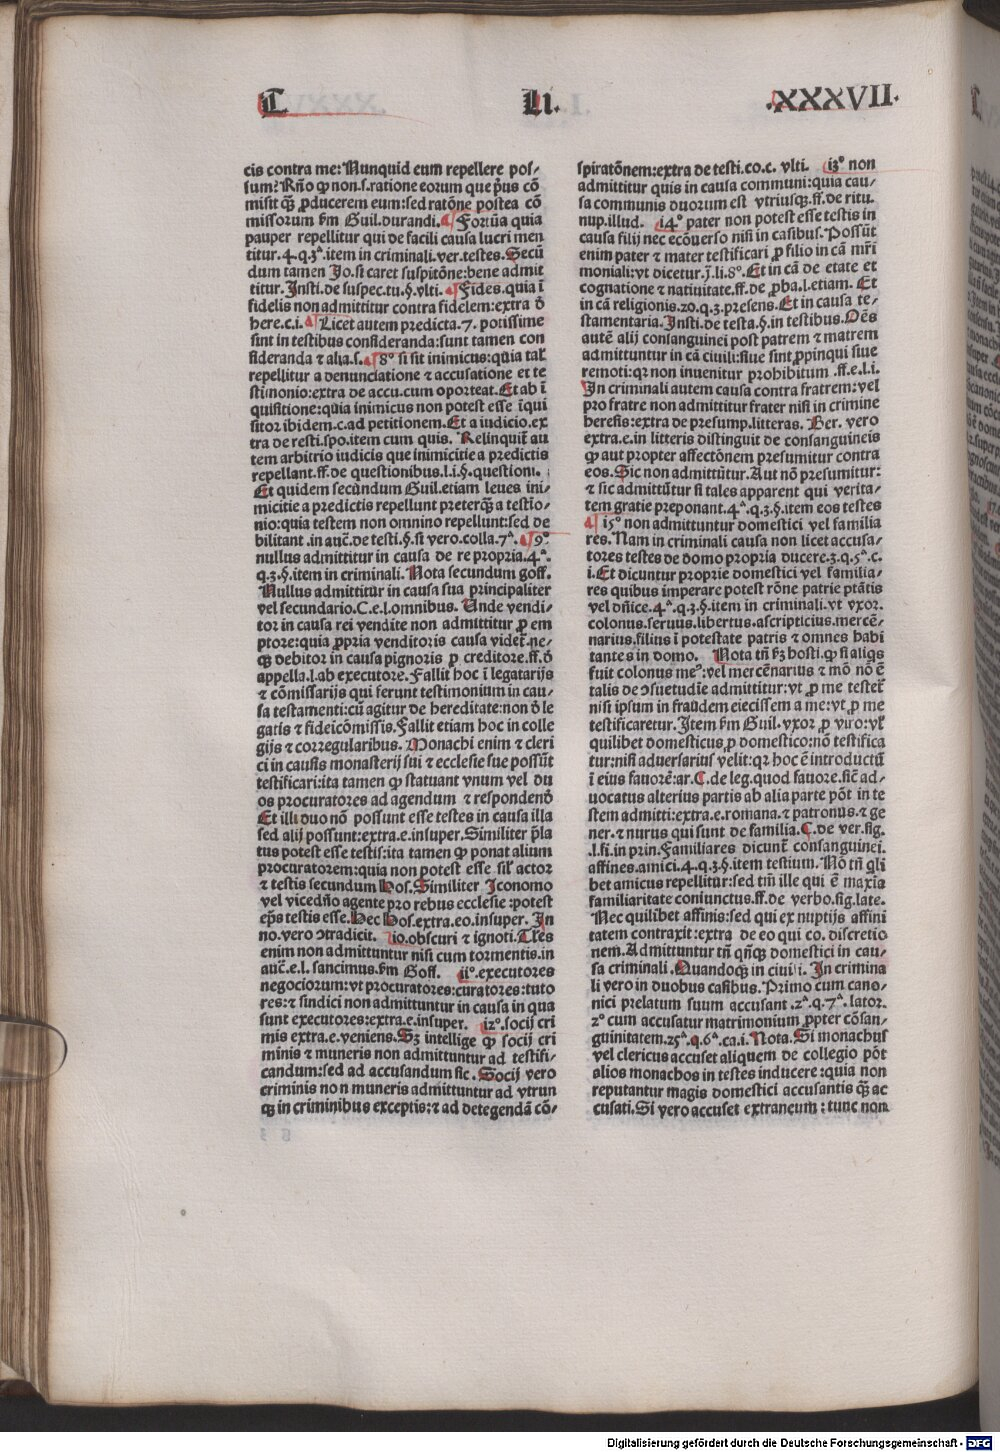 T. II. .XXXVII.
cis contra me: Nunquid eum repellere pos-
sum? Rñо ꝙ non.s.ratione eorum que pͥus cõ
misit qȝ ꝓducerem eum: sed ratõne postea cõ
missorum ẜm Guil.durandi. Fortũa quia
pauper repellitur qui de facili causa lucri men
titur.4.q.3ᵃ.item in criminali.ver.testes. Secũ
dum tamen Jo.st caret suspitõne: bene admit
titur. Insti.de suspec.tu.§.vlti. Fides.quia ĩ
fidelis non admittitur contra fidelem: extra ð
here.c.i. Licet autem predicta.7. potissime
sunt in testibus consideranda: sunt tamen con
sideranda ⁊ alia.s. 8º si sit inimicus: quia tał
repellitur a denunciatione ⁊ accusatione et te
stimonio: extra de accu.cum oporteat. Et ab ĩ
quisitione: quia inimicus non potest esse ĩqui
sitor ibidem.c.ad petitionem. Et a iudicio.ex
tra de resti.spo.item cum quis. Relinquiť au
tem arbitrio iudicis que inimicitie a predictis
repellant.ff.de questionibus.l.i.§.questioni.
Et quidem secundum Guil.etiam leues ini-
micitie a predictis repellunt preterqȝ a testio-
nio: quia testem non omnino repellunt: sed de
bilitant.in auc̃.de testi.§.si vero.colla.7ᵃ. 9º.
nullus admittitur in causa de re propria.4ᵃ.
q.3.§.item in criminali. Nota secundum goff.
Nullus admittitur in causa sua principaliter
vel secundario.C.e.l.omnibus. Unde vendi-
tor in causa rei vendite non admittitur ꝓ em
ptore: quia ꝓpria venditoris causa videť.ne-
qȝ debitor in causa pignoris ꝓ creditore.ff.ð
appella.l.ab executore. Fallit hoc ĩ legatarijs
⁊ cõmissarijs qui ferunt testimonium in cau-
sa testamenti: cũ agitur de hereditate: non ð le
gatis ⁊ fideicõmissis. Fallit etiam hoc in colle
gijs ⁊ corregularibus. Monachi enim ⁊ cleri
ci in causis monasterij sui ⁊ ecclesie sue possũt
testificari: ita tamen ꝙ statuant vnum vel du
os procuratores ad agendum ⁊ respondendũ
Et illi duo nõ possunt esse testes in causa illa
sed alij possunt: extra.e.insuper. Similiter p̃la
tus potest esse testis: ita tamen ꝙ ponat alium
procuratorem: quia non potest esse siľ actor
⁊ testis secundum Hos. Similiter Iconomo
vel vicedño agente pro rebus ecclesie: potest
ep̃s testis esse. Hec Hos.extra.eo.insuper. In
no.vero ↄtradicit. io.obscuri ⁊ ignoti. Tľes
enim non admittuntur nisi cum tormentis.in
auc̃.e.l.sancimus.ẜm Goff. iiº.executores
negociorum: vt procuratores: curatores: tuto
res: ⁊ sindici non admittuntur in causa in qua
sunt executores: extra.e.insuper. i2º.socij cri
mis extra.e.veniens. Sȝ intellige ꝙ socij cri
minis ⁊ muneris non admittuntur ad testifi-
candum: sed ad accusandum sic. Socij vero
criminis non muneris admittuntur ad vtrun
qȝ in criminibus exceptis: ⁊ ad detegendã cõ-
spiratõnem: extra de testi.co.c.vlti. i3º non
admittitur quis in causa communi: quia cau-
sa communis duorum est vtriusqȝ.ff.de ritu.
nup.illud. i4º pater non potest esse testis in
causa filij nec ecõuerso nisi in casibus. Possũt
enim pater ⁊ mater testificari ꝓ filio in cã mr̃i
moniali: vt dicetur.j.li.8º. Et in cã de etate et
cognatione ⁊ natiuitate.ff.de ꝓba.l.etiam. Et
in cã religionis.20.q.3.presens. Et in causa te-
stamentaria. Insti.de testa.§.in testibus. Oẽs
autẽ alij consanguinei post patrem ⁊ matrem
admittuntur in cã ciuili: siue sint ꝓpinqui siue
remoti: qr non inuenitur prohibitum .ff.e.l.i.
In criminali autem causa contra fratrem: vel
pro fratre non admittitur frater nisi in crimine
heresis: extra de presump.litteras. Ber. vero
extra.e.in litteris distinguit de consanguineis
ꝙ aut propter affectõnem presumitur contra
eos. Sic non admittũtur. Aut nõ presumitur:
⁊ sic admittũtur si tales apparent qui verita-
tem gratie preponant.4ᵃ.q.3.§.item eos testes
i5º non admittuntur domestici vel familia
res. Nam in criminali causa non licet accusa-
tores testes de domo propria ducere.3.q.5ᵃ.c.
i. Et dicuntur proprie domestici vel familia-
res quibus imperare potest rõne patrie ptãtis
vel dñice.4ᵃ.q.3.§.item in criminali.vt vxor.
colonus.seruus.libertus.ascripticius.mercẽ-
narius.filius ĩ potestate patris ⁊ omnes habi
tantes in domo. Nota tñ ẜȝ hosti.ꝙ si aliqs
fuit colonus meꝰ: vel mercẽnarius ⁊ mõ nõ ẽ
talis de ↄsuetudĩe admittitur: vt ꝓ me testeť
nisi ipsum in fraudem eiecissem a me: vt ꝓ me
testificaretur. Item ẜm Guil.vxor ꝓ viro: vľ
quilibet domesticus ꝓ domestico: nõ testifica
tur: nisi aduersarius velit: qr hoc ẽ introductũ
ĩ eius fauorẽ: ar.C.de leg.quod fauore.sic̃ ad-
uocatus alterius partis ab alia parte põt in te
stem admitti: extra.e.romana.⁊ patronus.⁊ ge
ner.⁊ nurus qui sunt de familia.C.de ver.sig.
l.fi.in prin. Familiares dicunť consanguinei.
affines.amici.4.q.3.§.item testium. Nõ tñ qli
bet amicus repellitur: sed tm̃ ille qui ẽ maxĩa
familiaritate coniunctus.ff.de verbo.sig.late.
Nec quilibet affinis: sed qui ex nuptijs affini
tatem contraxit: extra de eo qui co.discretio
nem. Admittuntur tñ qñqȝ domestici in cau-
sa criminali. Quandoqȝ in ciuili. In crimina
li vero in duobus casibus. Primo cum cano-
nici prelatum suum accusant.2ᵃ.q.7ᵃ.lator.
2º cum accusatur matrimonium ꝓpter cõsan-
guinitatem.25ᵃ.q.6ᵃ.ca.i. Nota. Si monachus
vel clericus accuset aliquem de collegio põt
alios monachos in testes inducere: quia non
reputantur magis domestici accusantis qȝ ac
cusati. Si vero accuset extraneum: tunc non
Digitalisierung gefördert durch die Deutsche Forschungsgemeinschaft - DFG